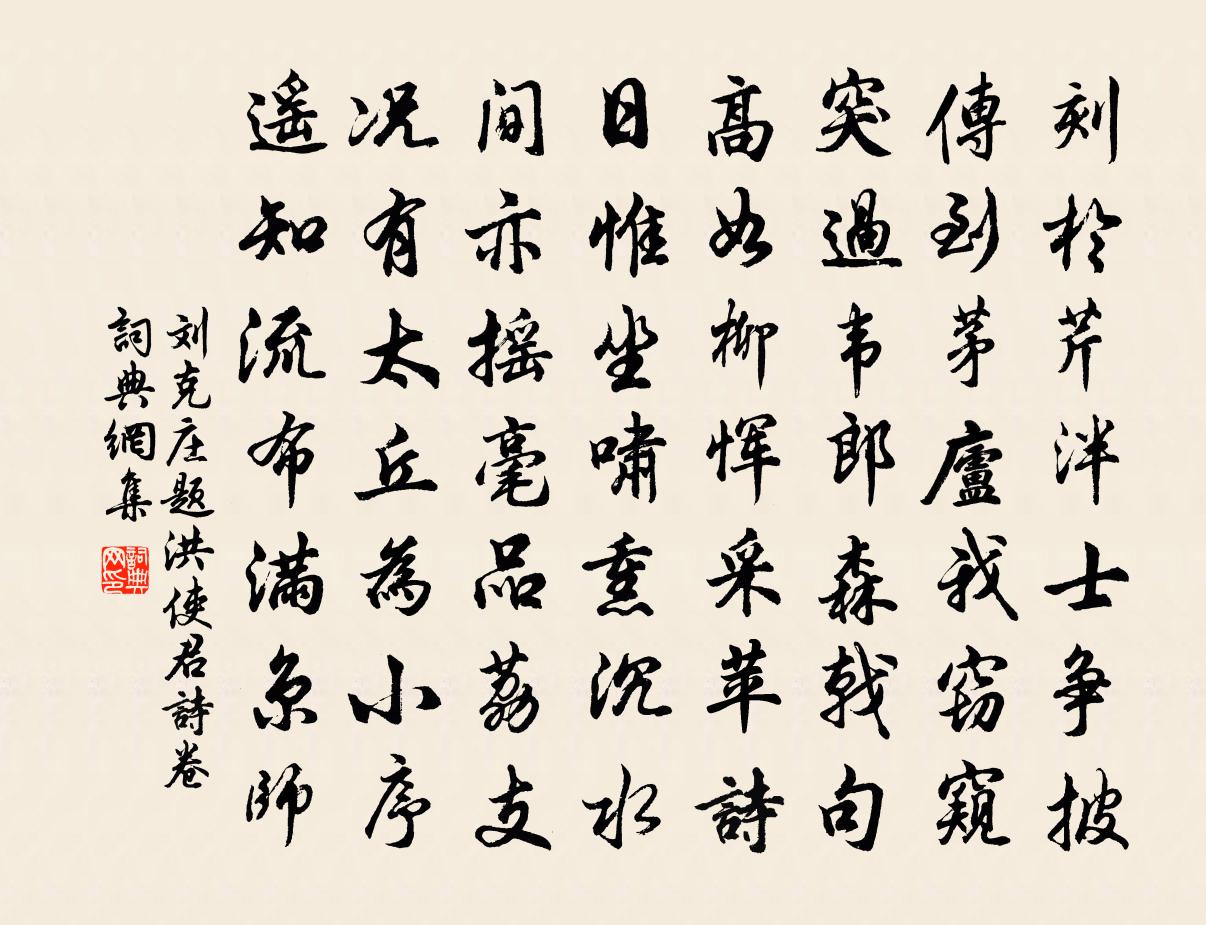 刻於芹泮士争披
傳到茅廬我窃窺
突過韦郎森戟句
高如柳恽采苹詩
日惟坐啸熏沉水
间亦摇毫品荔支
况有太丘為小序
遥知流布满京師
刘克庄题洪使君詩卷
詞典網集
詞典网印